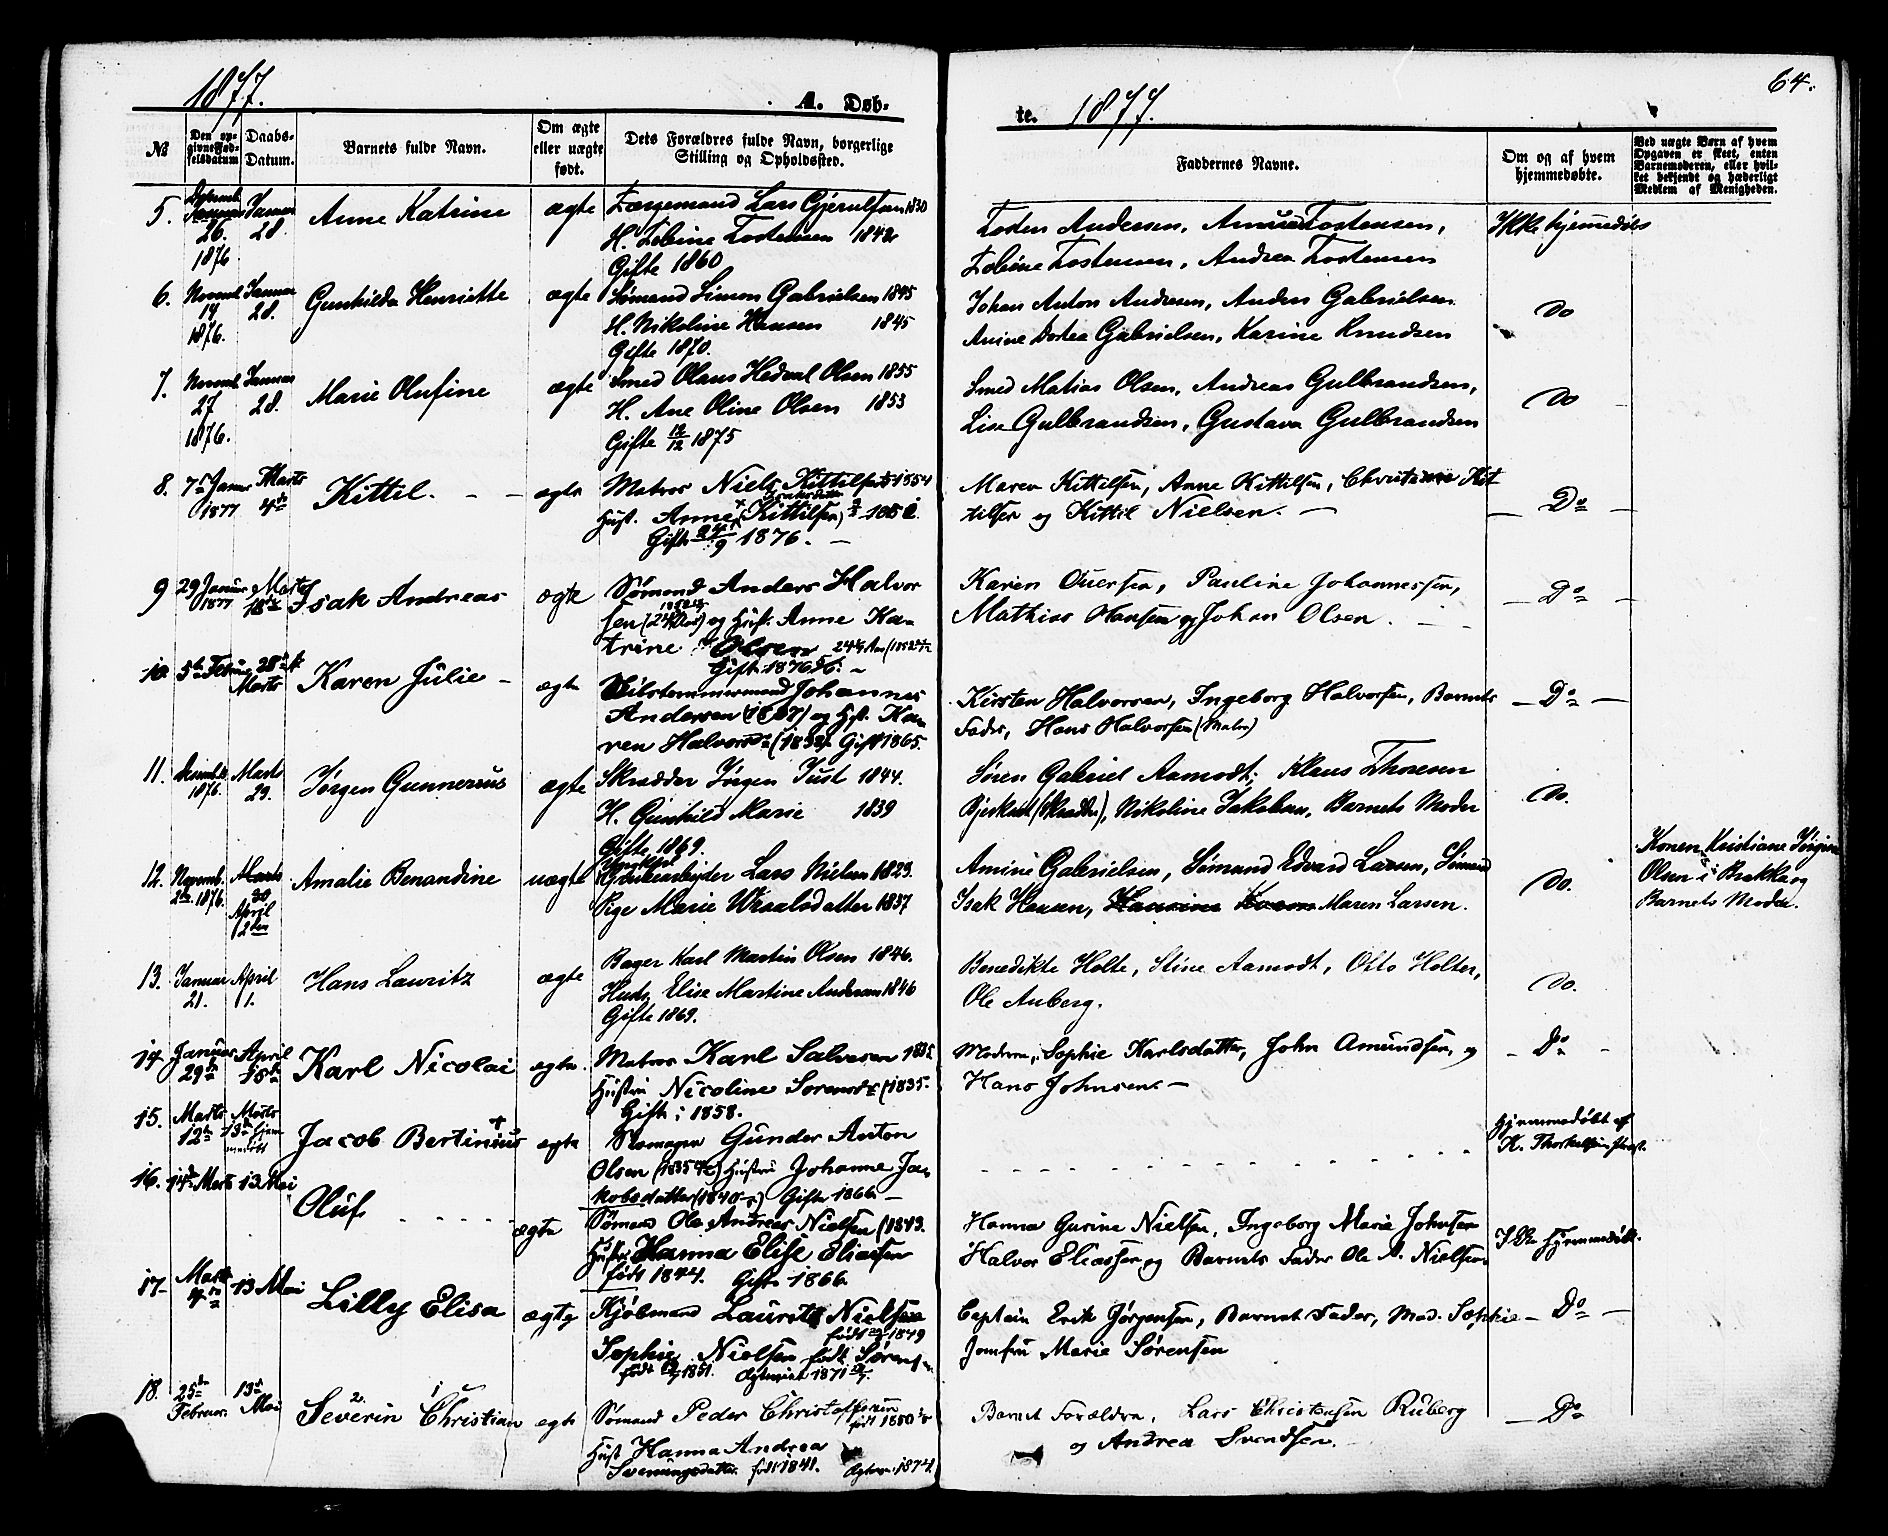 1877.
A. Døb-
te. 1877.
64.
№
Den op-
givne Fød-
selsdatum
Daabs-
Datum.
Barnets fulde Navn.
Om ægte
eller uægte
født.
Dets Forældres fulde Navn, borgerlige
Stilling og Opholdssted.
Faddernes Navne.
Om og af hvem
hjemmedøbte.
Ved uægte Børn af hvem
Opgaven er skeet, enten
Barnemoderen, eller hvil-
ket bekjendt og hæderligt
Medlem af Menigheden.
5. 26. 1876 Januar 28. Anne Katrine ægte Lars Gjerulfsen 1830
H. Tobine Tostensen 1842
Gifte 1860
Tosten Andersen, Tostensen,
Tobine Tostensen, Andrea Tostensen
Ikke hjemmedøbt
6. Novemb. 14 1876. Januar 28. Gunhilda Henriette ægte Sømand Simon Gabrielsen 1845
H. Nikoline Hansen 1845
Gifte 1870.
Johan Anton Andresen, Anders Gabrielsen
Anine Dortea Gabrielsen, Karine Knudsen
Do
7. Novemb. 27 1876. Januar 28. Marie Olufine ægte Smed Olaus Hedval Olsen 1855
H. Ane Oline Olsen 1853
Gifte 12/12 1875
Smed Matias Olsen, Andreas Gulbrandsen,
Lise Gulbrandsen, Gustava Gulbrandsen
Do
8. 7de Januar 1877 Marts 4de Kittil. ægte Matros Niels Kittilsen 1854
Hust. Anne (Kittilsen)
Gift 1876.
Maren Kittilsen, Anne Kittilsen, Christiane Kit
tilsen og Kittil Nielsen.
Do
9 29 Januar 1877 Marts 18de Isak Andreas ægte Sømand Anders Halvor
sen og Hust. Anne Ka-
trine Olsen
Gift 1876
Karen Oversen, Pauline Johannessen,
Mathias Hansen og Johan Olsen.
Do
10. 5te Februar 28de Marts Karen Julie ægte Johannes
Andersen og Hust. Ka-
ren Halvorsd. Gift 1865.
Kirsten Halvorsen, Ingeborg Halvorsen, Barnets
Fader, Hans Halvorsen (Matros)
Do
11. 1876. Marts 29. Jørgen Gunnerius ægte Skrædder Jørgen Just 1844.
H. Gunhild Marie 1839
Gifte 1869.
Søren Gabriel Aamodt, Klaus Thoresen
(Skrædder), Nikoline Jakobsen, Barnets Moder
Do.
12. Novemb. 2den 1876. April 2den Amalie Benandine uægte Lars Nielsen 1829.
Pige Marie Wraalsdatter 1837
Amine Gabrielsen, Sømand Edvard Larsen, Sømand
Isak Hansen, Maren Larsen.
Do.
Konen Kristiane Jørgine
Olsen i Brekka og
Barnets Moder.
13. Januar 21. April 1. Hans Lauritz ægte Bager Karl Martin Olsen 1846.
Hustr. Elise Martine Andersen 1846
Gifte 1869.
Benedikte Holte, Stine Aamodt, Otto Holter,
Ole Auberg.
Do.
14. Januar 29de April 15de Karl Nicolai ægte. Matros Karl Salvesen
Hustru Nicoline Sorensd. (1835.
Gift i 1858.
Moderen, Sophie Karlsdatter, John Amundsen, og
Hans Johnsen.
Do
15. Marts 12te Marts 13de Jacob Bertinius ægte Gunder Anton
Olsen Hustru Johanne Ja-
kobsdatter Gifte 1866.
hjemmedøbt af
K. Thorkelsen
16. 14de Marts 13 Mai Oluf ægte Sømand Ole Andreas Nielsen (1843.
Hustr. Hanna Elise Eliassen
født 1844. Gift 1866
Hanna Gurine Nielsen, Ingeborg Marie Johnsen
Halvor Eliassen og Barnets Fader Ole A. Nielsen
Ikke hjemmedøbt.
17 Marts 4de 13 Mai Lilly Elisa ægte Kjøbmand Laurits Nielsen
født 1849
Sophie Nielsen født Sørensen
født 1851. 1871
Captain Erik Jørgensen, Barnets Fader, Mad. Sophie
Jomfru Marie Sørensen
Do
18. 25de Februar. 13de Mai Severin Christian ægte Sømand Peder Christoffersen
født 1850
Hust Hanna Andrea
Sveningsdatter født 1841. 1874.
Barnets Forældre, Lars Christensen Ruberg
og Andrea Svendsen.
Do